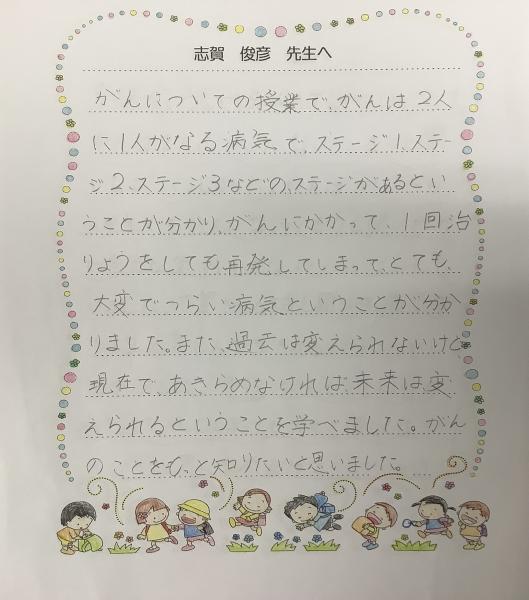 志賀　俊彦　先生へ
がんについての授業で、がんは2人
に1人がなる病気で、ステージ1、ステー
ジ2、ステージ3などのステージがあるとい
うことが分かり、がんにかかって、1回治
りょうをしても再発してしまって、とても、
大変でつらい病気ということが分か
りました。また、過去は変えられないけど、
現在で、あきらめなければ未来は変
えられるということを学べました。がん
のことをもっと知りたいと思いました。